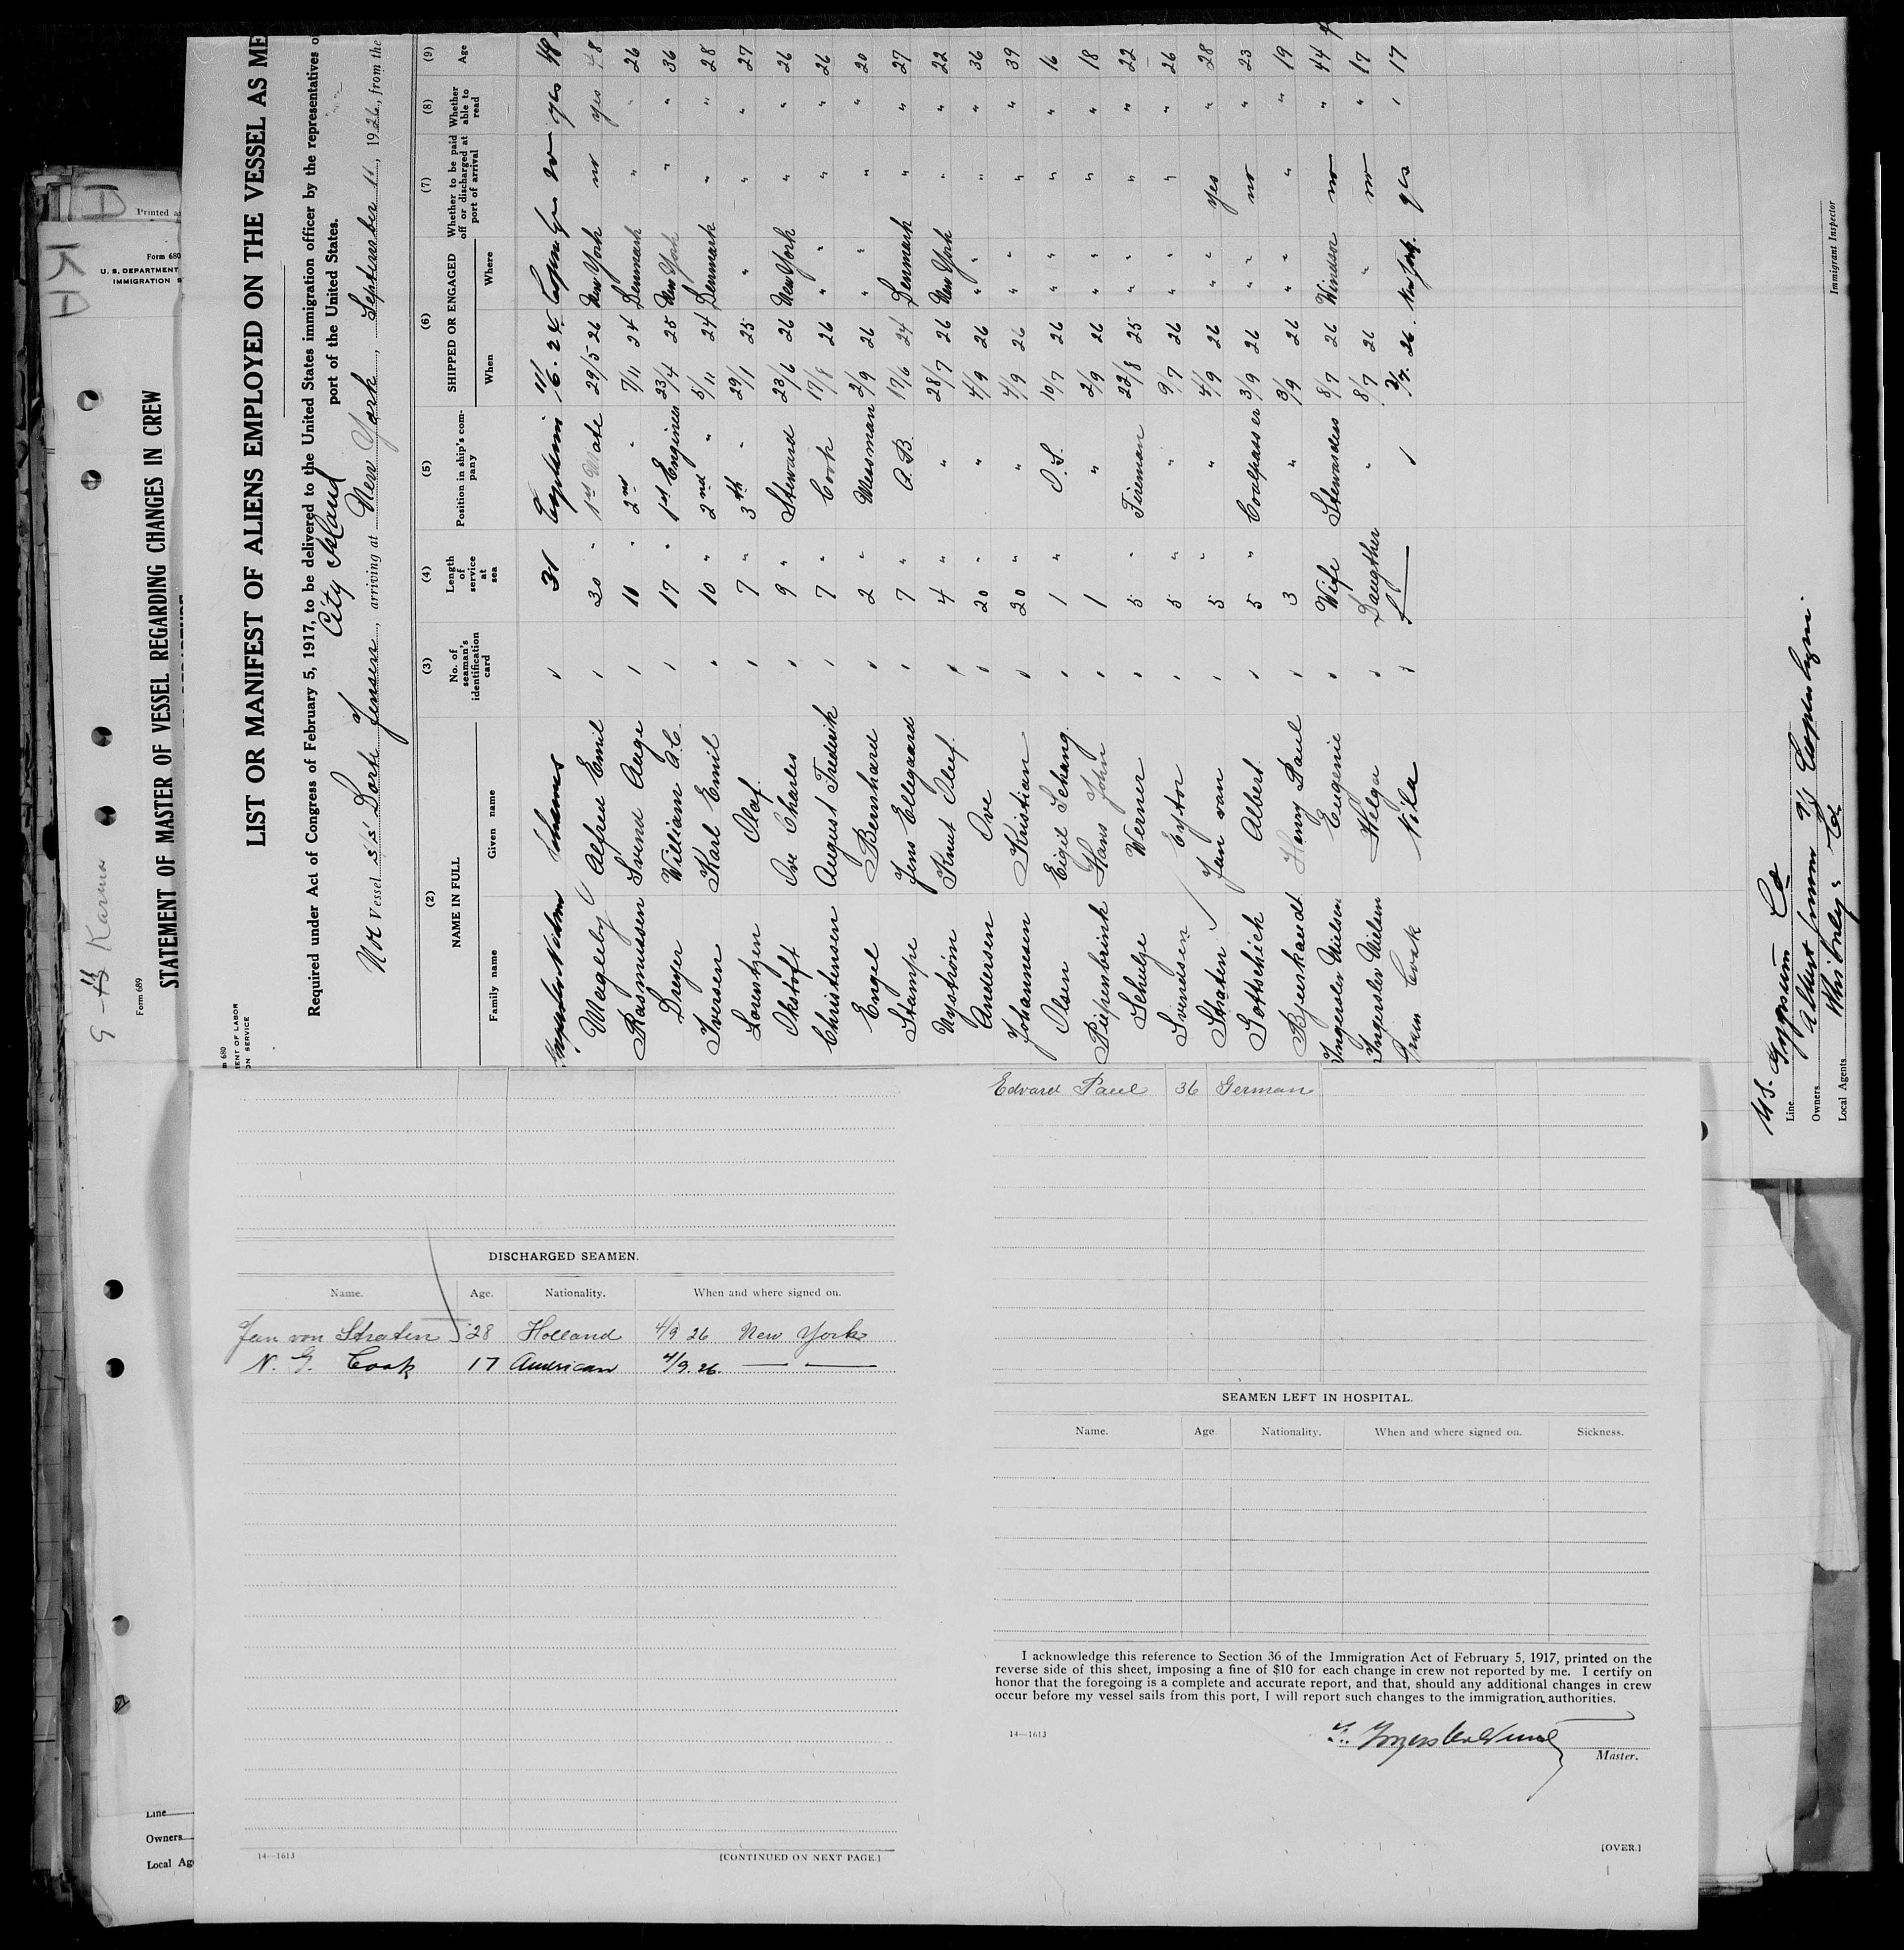 LIST OR MANIFEST OF ALIENS EMPLOYED ON THE VESSEL AS ME
Required under Act of Congress of February 5, 1917, to be delivered to the United States immigration officer by the representatives o
port of the United States.
City Island
Vessel S/S Dorte Jensen, arriving at New York, September 11, 1926, from the
(2) (3) (4) (5) (6) (7) (8) (9)
NAME IN FULL
Family name Given name
No. of seaman's identification card
Length of service at sea
Position in ship's company
SHIPPED OR ENGAGED
When Where
Whether to be paid off or discharged at port of arrival
Whether able to read
Age
Johannes 31 Captain 11/6. 24 no yes 48
Magleby Alfred Emil 30 " 1st Mate 29/5 26 New York no yes 48
Rasmussen Svend Aage 10 " 2nd " 7/11 24 Denmark " " 26
Dreyer William A.C. 17 " 1st Engineer 23/4 25 New York " " 36
Iversen Karl Emil 10 " 2nd " 5/11 24 Denmark " " 28
Lorentzen Olaf 7 " 3th " 29/1 25 " " " 27
Okstoft Ove Charles 9 " Steward 23/6 26 New York " " 26
Christensen August Frederik 7 " Cook 17/8 26 " " " " 26
Engel Bernhard 2 " Messman 2/9 26 " " " " 20
Stampe Jens Ellegaard 7 " A.B. 17/6 24 Denmark " " 27
Nystrøm Knut Oluf 4 " " 28/7 26 New York " " 22
Andersen Ove 20 " " 4/9 26 " " " " 36
Johannesen Kristian 20 " " 4/9 26 " " " " 39
Olsen Eigil Schang 1 " O.S. 10/7 26 " " " " 16
Piepenbrink Hans John 1 " 2/9 26 " " " " 18
Schulze Werner 5 " Fireman 22/8 25 " " " " 22
Svendsen Eyior 5 " " 9/7 26 " " " " 26
Straten Jan van 5 " " 4/9 26 " " yes " 28
Gottschick Albert 5 " Coalpasser 3/9 26 " " no " 23
Bjenkandt Henry Paul 3 " 3/9 26 " " " " 19
Ingersler Nielsen Eugenie Wife Stewardess 8/7 26 Windsor no " 44
Ingersler Nielsen Helga Daugther " 8/7 26 " no " 17
Gram Cook Nila 26. New York. yes 17
U.S. Gypsum Co
Line
Owners Albert Copenhagen.
Local Agents Co
Immigrant Inspector
STATEMENT OF MASTER OF VESSEL REGARDING CHANGES IN CREW
Form 689
Karma
Form 680
U. S. DEPARTMENT
IMMIGRATION S
Printed a
m 680
ENT OF LABOR
ON SERVICE
DISCHARGED SEAMEN.
Name. Age. Nationality. When and where signed on.
Jan von Straten 28 Holland 4/9 26 New York
N. G. Cook 17 American 4/9. 26. — —
14—1613
[CONTINUED ON NEXT PAGE.]
Edvard Paul 36 German
SEAMEN LEFT IN HOSPITAL.
Name. Age Nationality. When and where signed on. Sickness.
I acknowledge this reference to Section 36 of the Immigration Act of February 5, 1917, printed on the
reverse side of this sheet, imposing a fine of $10 for each change in crew not reported by me. I certify on
honor that the foregoing is a complete and accurate report, and that, should any additional changes in crew
occur before my vessel sails from this port, I will report such changes to the immigration authorities.
14—1613
Master.
[OVER.]
Line
Owners
Local Ag